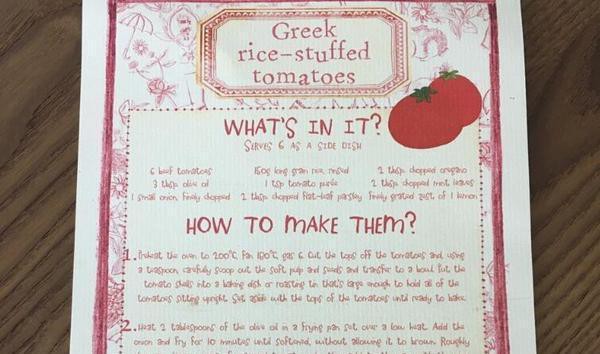 Greek
rice-stuffed
tomatoes
WHAT'S IN IT?
SERVES 6 AS A SIDE DISH
6 beef tomatoes 150g long grain rice, rinsed 2 tbsp chopped oregano
3 tbsp olive oil 1 tsp tomato purée 2 tbsp chopped mint leaves
1 small onion, finely chopped 2 tbsp chopped flat-leaf parsley finely grated zest of 1 lemon
HOW TO MAKE THEM?
1. Preheat the oven to 200°C, Fan 180°C, gas 6. Cut the tops off the tomatoes and, using
a teaspoon, carefully scoop out the soft pulp and seeds and transfer to a bowl. Put the
tomato shells into a baking dish or roasting tin that's large enough to hold all of the
tomatoes sitting upright. Set aside with the tops of the tomatoes until ready to bake.
2. Heat 2 tablespoons of the olive oil in a frying pan set over a low heat. Add the
onion and fry for 10 minutes until softened, without allowing it to brown. Roughly